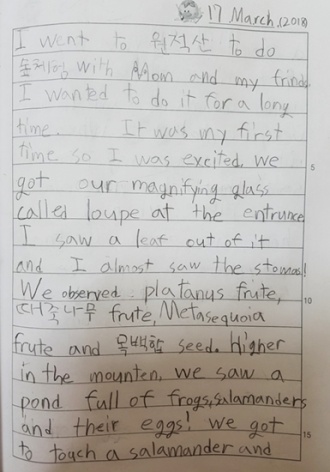 17 March.(2018)
I went to 원적산 to do
숲체험 with Mom and my frinds
I wanted to do it for a long
time. It was my first
time so I was excited. we
got our magnifying glass
called loupe at the entrunce
I saw a leaf out of it
and I almost saw the stomas!
We observed platanus frute,
때죽나무 frute, Metasequoia
frute and 목백합 seed. Higher
in the mounten, we saw a
pond full of frogs, salamanders
and their eggs! we got
to touch a salamander and
5
10
15